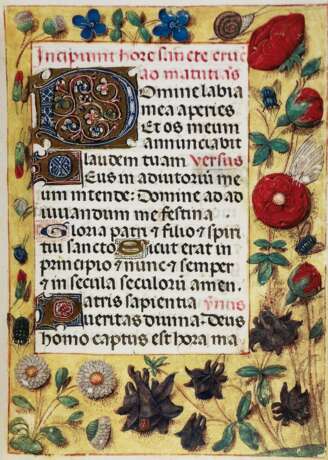 Incipiunt hore sancte cruc
ao matutinis
Domine labia
mea aperies
Et os meum
annunciabit
laudem tuam versus
Deus in adiutoriu me
um intende: Domine ad ad
iuuandum me festina
Gloria patri & filio & spiri
tu sancto Sicut erat in
principio & nunc & semper
& in secula seculoru amen.
Patris sapientia
ueritas diuina. Deus
homo captus est hora ma